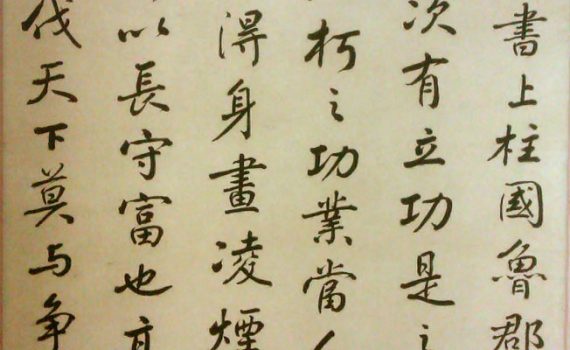 書上柱國魯郡
次有立功是之
朽之功業當人
得身畫凌煙
以長守富也高
伐天下莫与争